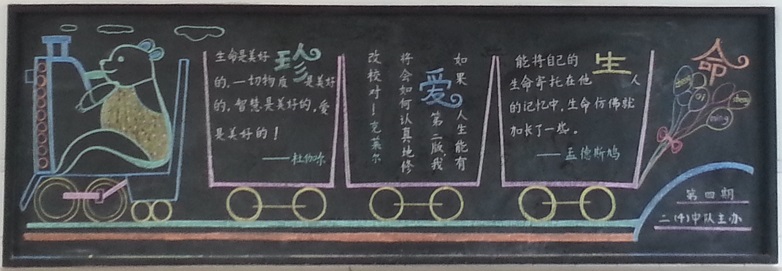 珍
生命是美好
的，一切物质是美好
的，智慧是美好的，爱
是美好的！
——杜伯林
爱
如果人生能有
第二版，我
将会如何认真地修
改校对！克莱尔
生
能将自己的
生命寄托在他人
的记忆中，生命仿佛就
加长了一些。
——孟德斯鸠
命
第四期
二(4)中队主办